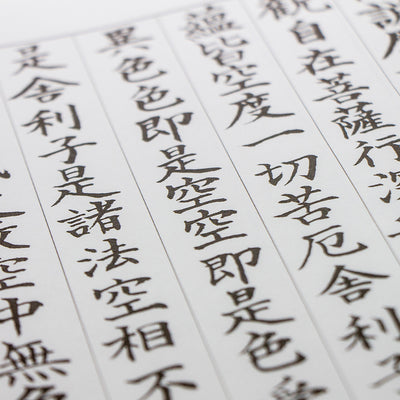 観自在菩薩行深
蘊皆空度一切苦厄舍利子
異色色即是空空即是色受
是舍利子是諸法空相不
空中無色